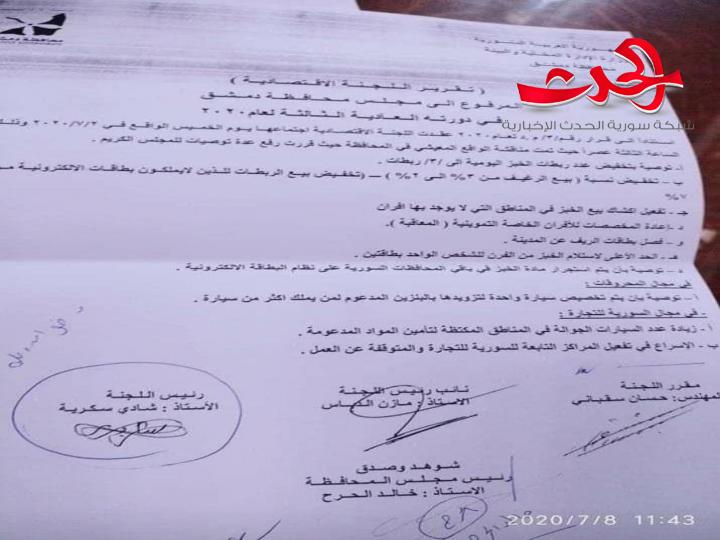 محافظة دمشق
الحدث
شبكة سورية الحدث الإخبارية
( تقرير اللجنة الاقتصادية )
المرفوع الى مجلس محافظة دمشق
في دورته العادية الثالثة لعام ٢٠٢٠
استنادا الى قرار رقم /٣/ لعام ٢٠٢٠ عقدت اللجنة الاقتصادية اجتماعها يوم الخميس الواقع في ٢٠٢٠/٧/٢ وذلك
الساعة الثالثة عصراً حيث تمت مناقشة الواقع المعيشي في المحافظة حيث قررت رفع عدة توصيات للمجلس الكريم .
أ- توصية بتخفيض عدد ربطات الخبز اليومية الى /٣/ ربطات .
ب – تخفيض نسبة ( بيع الرغيف من ٣% الى ٢% ) – (تخفيض بيع الربطات للذين لايملكون بطاقات الالكترونية من
٧%
جـ - تفعيل اكشاك بيع الخبز في المناطق التي لا يوجد بها افران
د -إعادة المخصصات للأفران الخاصة التموينية ( المعاقبة ).
و - فصل بطاقات الريف عن المدينة .
هـ - الحد الأعلى لاستلام الخبز من الفرن للشخص الواحد بطاقتين .
د – توصية بأن يتم استجرار مادة الخبز في باقي المحافظات السورية على نظام البطاقة الالكترونية .
في مجال المحروقات :
أ – توصية بان يتم تخصيص سيارة واحدة لتزويدها بالبنزين المدعوم لمن يملك اكثر من سيارة .
- في مجال السورية للتجارة :
أ - زيادة عدد السيارات الجوالة في المناطق المكتظة لتأمين المواد المدعومة .
ب - الاسراع في تفعيل المراكز التابعة للسورية للتجارة والمتوقفة عن العمل .
مقرر اللجنة
المهندس: حسان سقباني
نائب رئيس اللجنة
الاستاذ : مازن
رئيس اللجنة
الأستاذ : شادي سكرية
شوهد وصدق
رئيس مجلس المحافظة
الاستاذ : خالد الحرح
2020/7/8 11:43